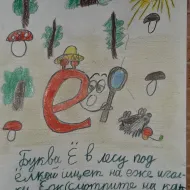 Буква Ё в лесу под
ёлкой ищет на еже игол-
ки Ёж (смотрите на кар